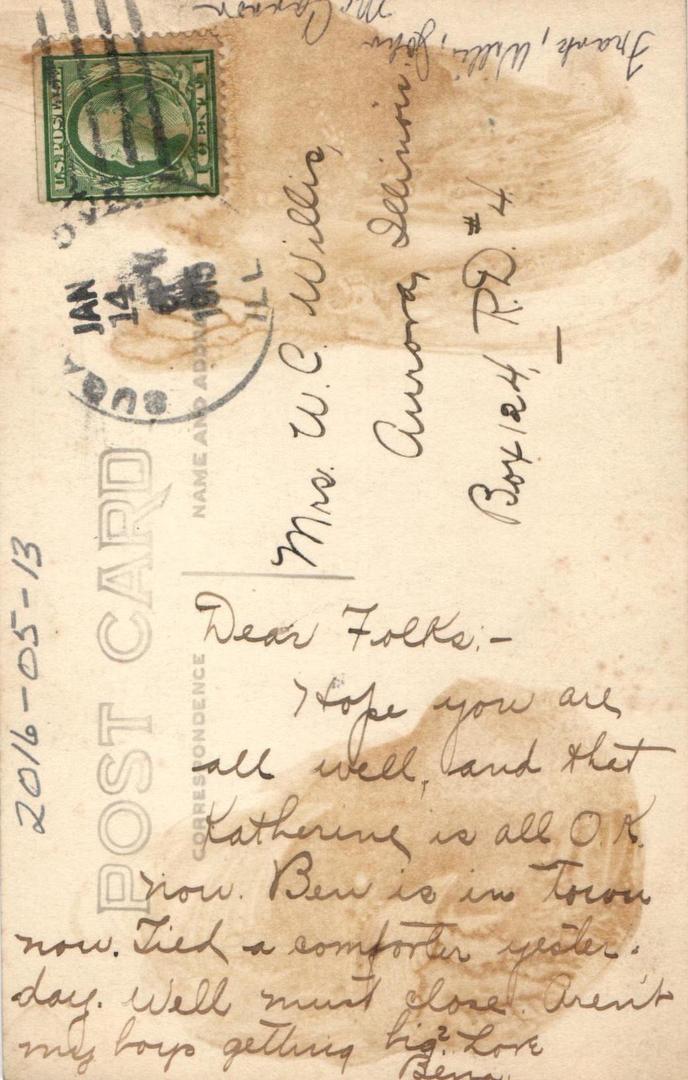 Frank, Willi, John
U.S. POSTAGE
1 CENT 1
JAN
14
ILL
POST CARD
CORRESPONDENCE
NAME AND ADDRESS
Mrs. W. C. Willis,
Aurora, Illinois
Box 124, R.D. #4
2016-05-13
Dear Folks:-
Hope you are
all well, and that
Katherine is all O.K.
now. Ben is in Town
now. Tied a comforter yester-
day. Well must close. Aren't
my boys getting big? Love
Bena